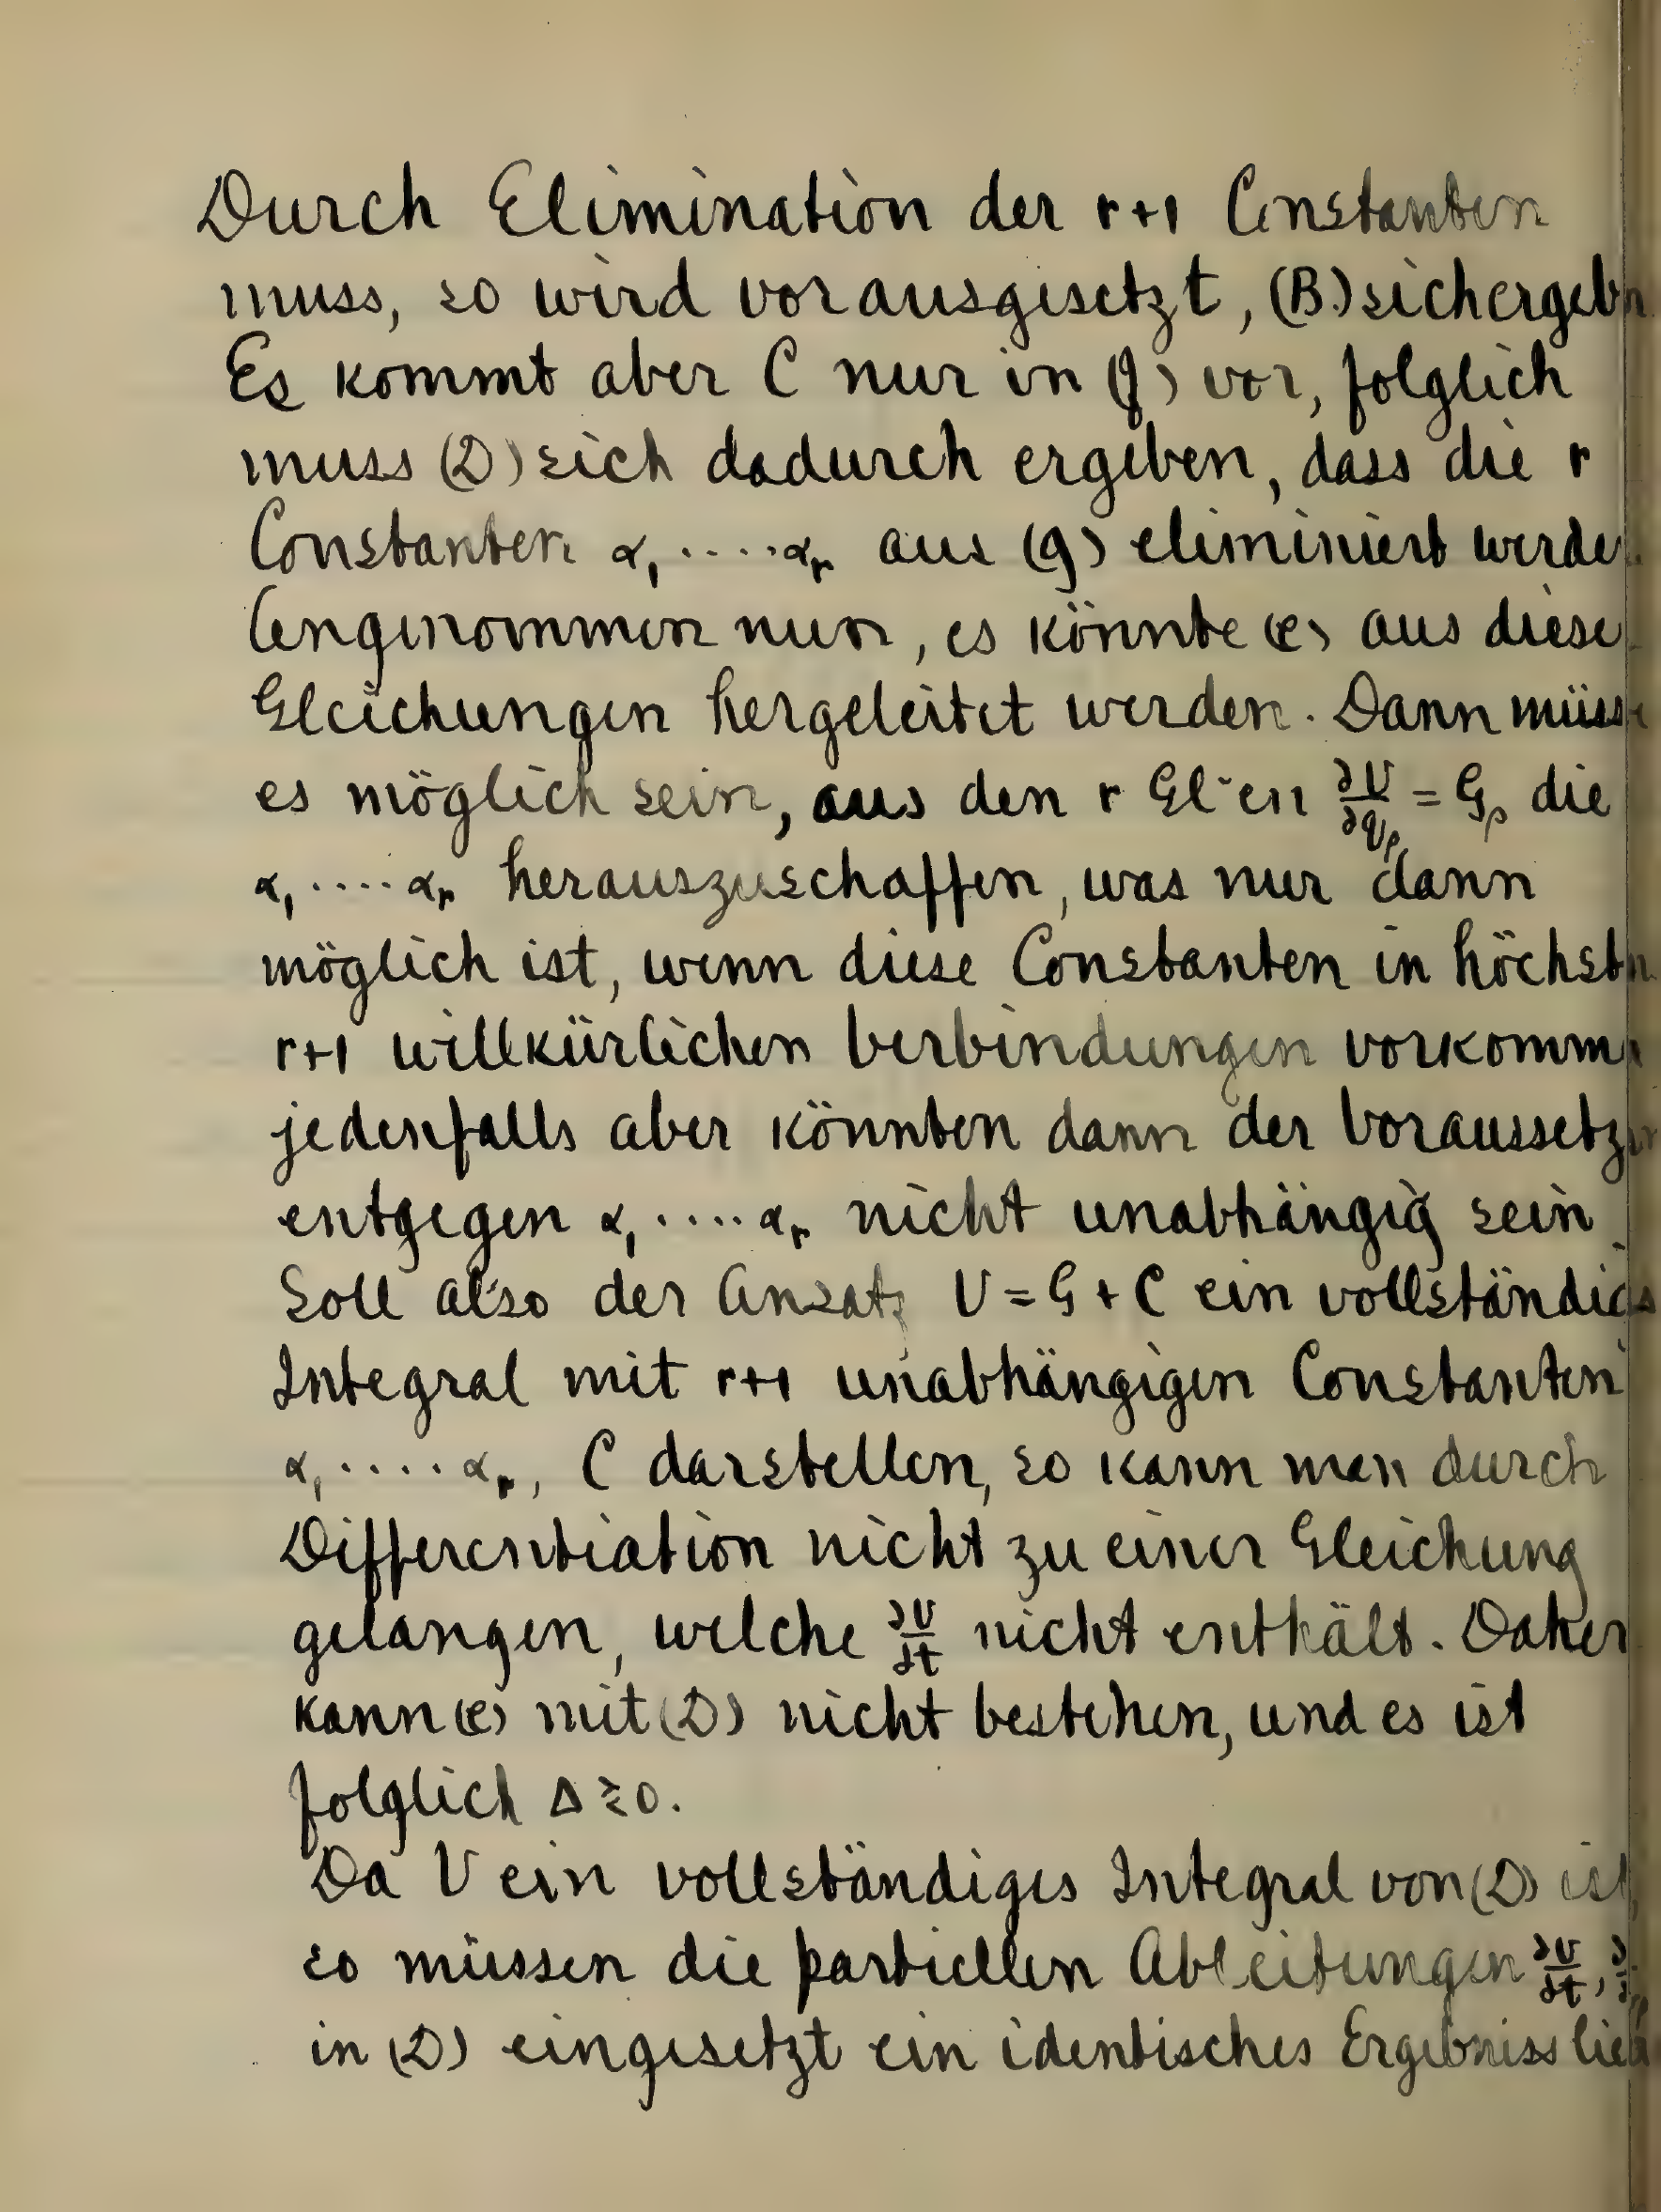 Durch Elimination der r+1 Constanten
muss, so wird vorausgesetzt, (B) sich ergeben
Es kommt aber C nur in (f) vor, folglich
muss (D) sich dadurch ergeben, dass die r
Constanten α₁ ····· αᵣ aus (g) eliminiert werden.
Angenommen nun, es könnte (e) aus diesen
Gleichungen hergeleitet werden. Dann müsse
es möglich sein, aus den r Gl˘en ∂V/∂qᵨ = Gᵨ die
α₁ ···· αᵣ herauszuschaffen, was nur dann
möglich ist, wenn diese Constanten in höchstn
r+1 willkürlichen Verbindungen vorkomme
jedenfalls aber könnten dann der Voraussetzun
entgegen α₁ ···· αᵣ nicht unabhängig sein.
Soll also der Ansatz V = G + C ein vollständigs
Integral mit r+1 unabhängigen Constanten
α₁ ····· αᵣ, C darstellen, so kann man durch
Differentiation nicht zu einer Gleichung
gelangen, welche ∂V/∂t nicht enthält. Daher
kann (e) mit (D) nicht bestehen, und es ist
folglich Δ ≷ 0.
Da V ein vollständiges Integral von (D) ist,
so müssen die partiellen Ableitungen ∂V/∂t,
in (D) eingesetzt ein identisches Ergebniss